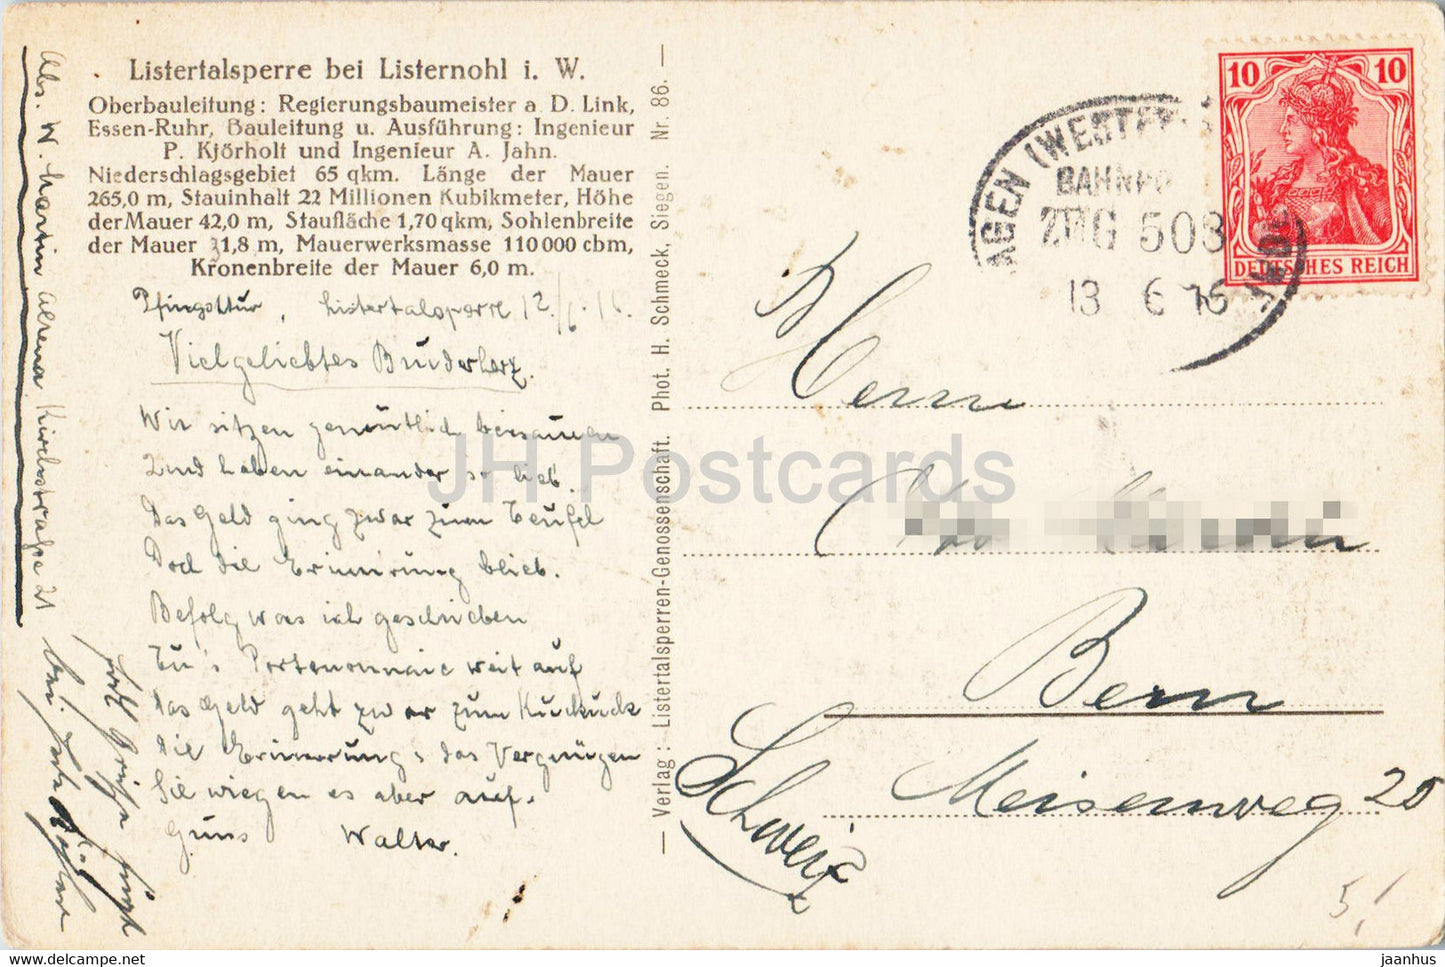 Listertalsperre bei Listernohl i. W.
Oberbauleitung: Regierungsbaumeister a D. Link,
Essen-Ruhr, Bauleitung u. Ausführung: Ingenieur
P. Kjörholt und Ingenieur A. Jahn.
Niederschlagsgebiet 65 qkm. Länge der Mauer
265,0 m, Stauinhalt 22 Millionen Kubikmeter, Höhe
der Mauer 42,0 m, Staufläche 1,70 qkm, Sohlenbreite
der Mauer 31,8 m, Mauerwerksmasse 110 000 cbm,
Kronenbreite der Mauer 6,0 m.
Pfingsttur, Listertalsperre 12./6.
Vielgeliebtes Bruderherz.
Wir sitzen gemütlich beisammen
Und haben einander so lieb.
Das Geld ging zwar zum Teufel
Doch die Erinnrung blieb.
Befolg was ich geschrieben
Tu's Portemonnaie weit auf
Das Geld geht zwar zum Kuckuck
die Erinnerung & das Vergnügen
Sie wiegen es aber auf.
Gruss Walter.
Abs. W. Kirchstraße 21
Verlag: Listertalsperren-Genossenschaft. Phot. H. Schmeck, Siegen. Nr. 86.
AGEN (WESTF
BAHNPO
ZUG 508
13 6
10 10
DEUTSCHES REICH
Herrn
Bern
Meisenweg 20
Schweiz
JH Postcards
5.
hippostcard.com
jaanhus